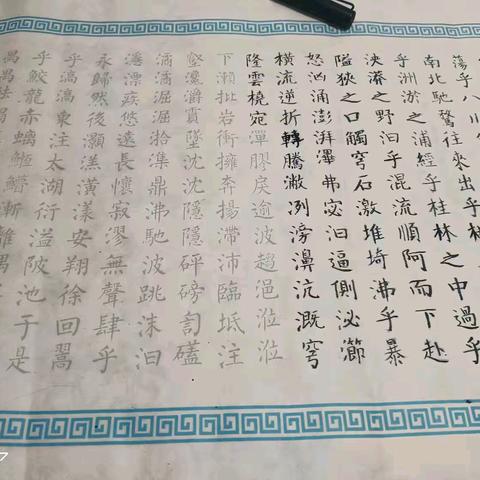 蕩乎八川
南北馳騖往來出乎
乎洲淤之浦經乎桂林之中過乎
泱漭之野汨乎混流順阿而下赴
隘狹之口觸穹石激堆埼沸乎暴
怒洶涌澎湃滭弗宓汨逼側泌瀄
橫流逆折轉騰潎洌滂濞沆溉穹
隆雲橈宛潬膠戾逾波趨浥涖涖
下瀨批岩衝擁奔揚滯沛臨坻注
壑瀺灂霣墜沈沈隱隱砰磅訇磕
潏潏淈淈拾潗鼎沸馳波跳沫汨
漂疾悠遠長懷寂漻無聲肆乎
永歸然後灝溔潢漾安翔徐回翯
乎滈滈東注太湖衍溢陂池于是
乎鮫龍赤螭漸離
禺禺